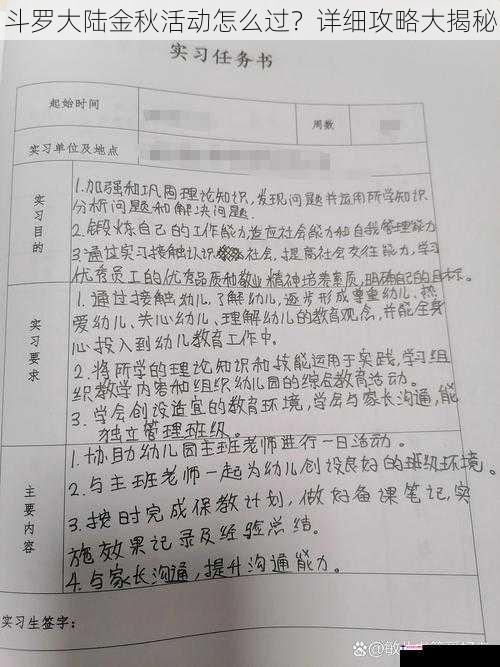 斗罗大陆金秋活动怎么过？详细攻略大揭秘
实习任务书
起始时间
周数
实习单位及地点
实习目的
1.加强和巩固理论知识,发现问题并运用所学知识
分析问题和解决问题.
2.锻炼自己的工作能力,适应社会能力和自我管理能力
3.通过实习接触认识社会,提高社会交往能力,学习
优秀员工的优秀品质和敬业精神培养素质,明确自己的目标。
实习要求
1.通过接触幼儿,了解幼儿,逐步形成尊重幼儿、热
爱幼儿、关心幼儿、理解幼儿的教育观念,并能全身
心投入到幼儿教育工作中。
2.将所学的理论知识和技能运用于实践,学习组
织教学内容和组织幼儿园的综合教育活动。
3.学会创设适宜的教育环境,学会与家长沟通,能
独立管理班级。
主要内容
1.协助幼儿园主班老师进行一日活动。
2.与主班老师一起为幼儿创设良好的班级环境。
3.按时完成保教计划,做好备课笔记,实
施效果记录及经验总结。
4.与家长沟通,提升沟通能力。
实习生签字: